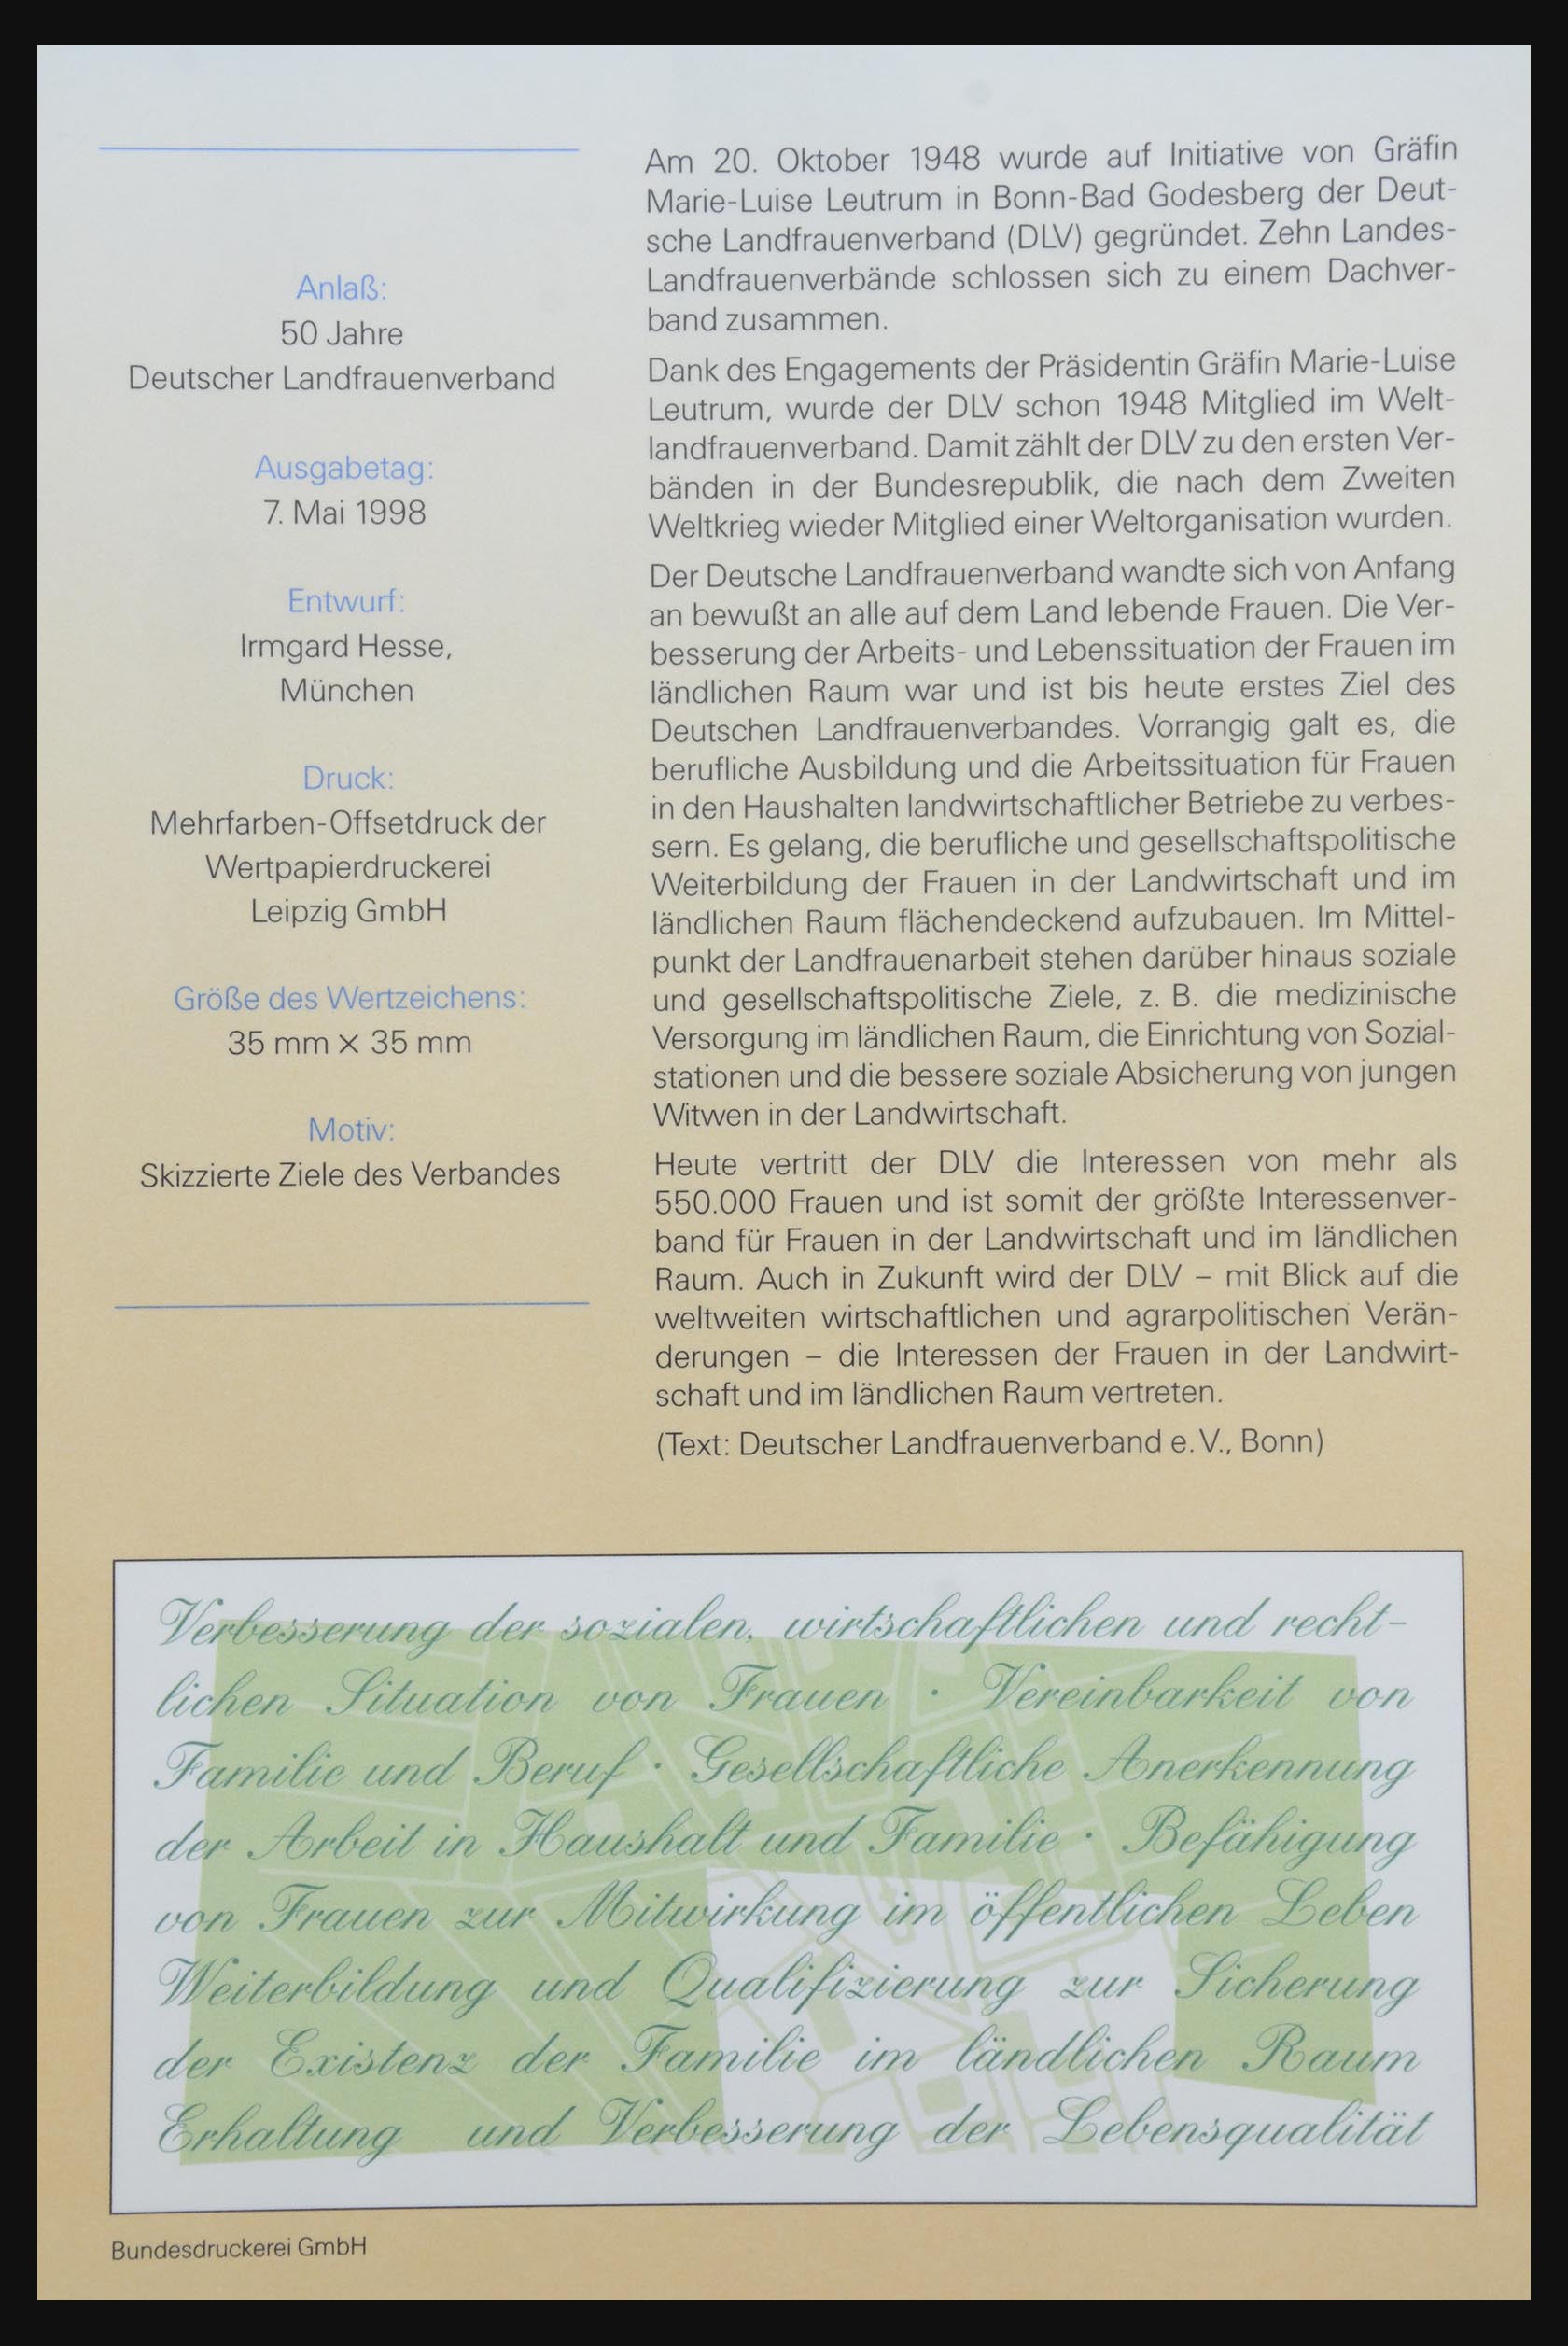 Anlaß:
50 Jahre
Deutscher Landfrauenverband
Ausgabetag:
7. Mai 1998
Entwurf:
Irmgard Hesse,
München
Druck:
Mehrfarben-Offsetdruck der
Wertpapierdruckerei
Leipzig GmbH
Größe des Wertzeichens:
35 mm × 35 mm
Motiv:
Skizzierte Ziele des Verbandes
Am 20. Oktober 1948 wurde auf Initiative von Gräfin
Marie-Luise Leutrum in Bonn-Bad Godesberg der Deut-
sche Landfrauenverband (DLV) gegründet. Zehn Landes-
Landfrauenverbände schlossen sich zu einem Dachver-
band zusammen.
Dank des Engagements der Präsidentin Gräfin Marie-Luise
Leutrum, wurde der DLV schon 1948 Mitglied im Welt-
landfrauenverband. Damit zählt der DLV zu den ersten Ver-
bänden in der Bundesrepublik, die nach dem Zweiten
Weltkrieg wieder Mitglied einer Weltorganisation wurden.
Der Deutsche Landfrauenverband wandte sich von Anfang
an bewußt an alle auf dem Land lebende Frauen. Die Ver-
besserung der Arbeits- und Lebenssituation der Frauen im
ländlichen Raum war und ist bis heute erstes Ziel des
Deutschen Landfrauenverbandes. Vorrangig galt es, die
berufliche Ausbildung und die Arbeitssituation für Frauen
in den Haushalten landwirtschaftlicher Betriebe zu verbes-
sern. Es gelang, die berufliche und gesellschaftspolitische
Weiterbildung der Frauen in der Landwirtschaft und im
ländlichen Raum flächendeckend aufzubauen. Im Mittel-
punkt der Landfrauenarbeit stehen darüber hinaus soziale
und gesellschaftspolitische Ziele, z. B. die medizinische
Versorgung im ländlichen Raum, die Einrichtung von Sozial-
stationen und die bessere soziale Absicherung von jungen
Witwen in der Landwirtschaft.
Heute vertritt der DLV die Interessen von mehr als
550.000 Frauen und ist somit der größte Interessenver-
band für Frauen in der Landwirtschaft und im ländlichen
Raum. Auch in Zukunft wird der DLV – mit Blick auf die
weltweiten wirtschaftlichen und agrarpolitischen Verän-
derungen – die Interessen der Frauen in der Landwirt-
schaft und im ländlichen Raum vertreten.
(Text: Deutscher Landfrauenverband e. V., Bonn)
Verbesserung der sozialen, wirtschaftlichen und recht-
lichen Situation von Frauen · Vereinbarkeit von
Familie und Beruf · Gesellschaftliche Anerkennung
der Arbeit in Haushalt und Familie · Befähigung
von Frauen zur Mitwirkung im öffentlichen Leben
Weiterbildung und Qualifizierung zur Sicherung
der Existenz der Familie im ländlichen Raum
Erhaltung und Verbesserung der Lebensqualität
Bundesdruckerei GmbH